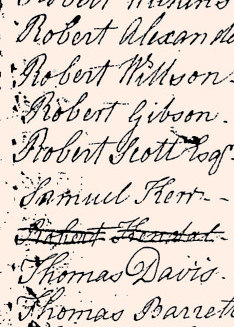 Robert Alexande
Robert Willson
Robert Gibson
Robert Scott Esqr
Samuel Kerr
Robert Kendal
Thomas Davis
Thomas Barrett